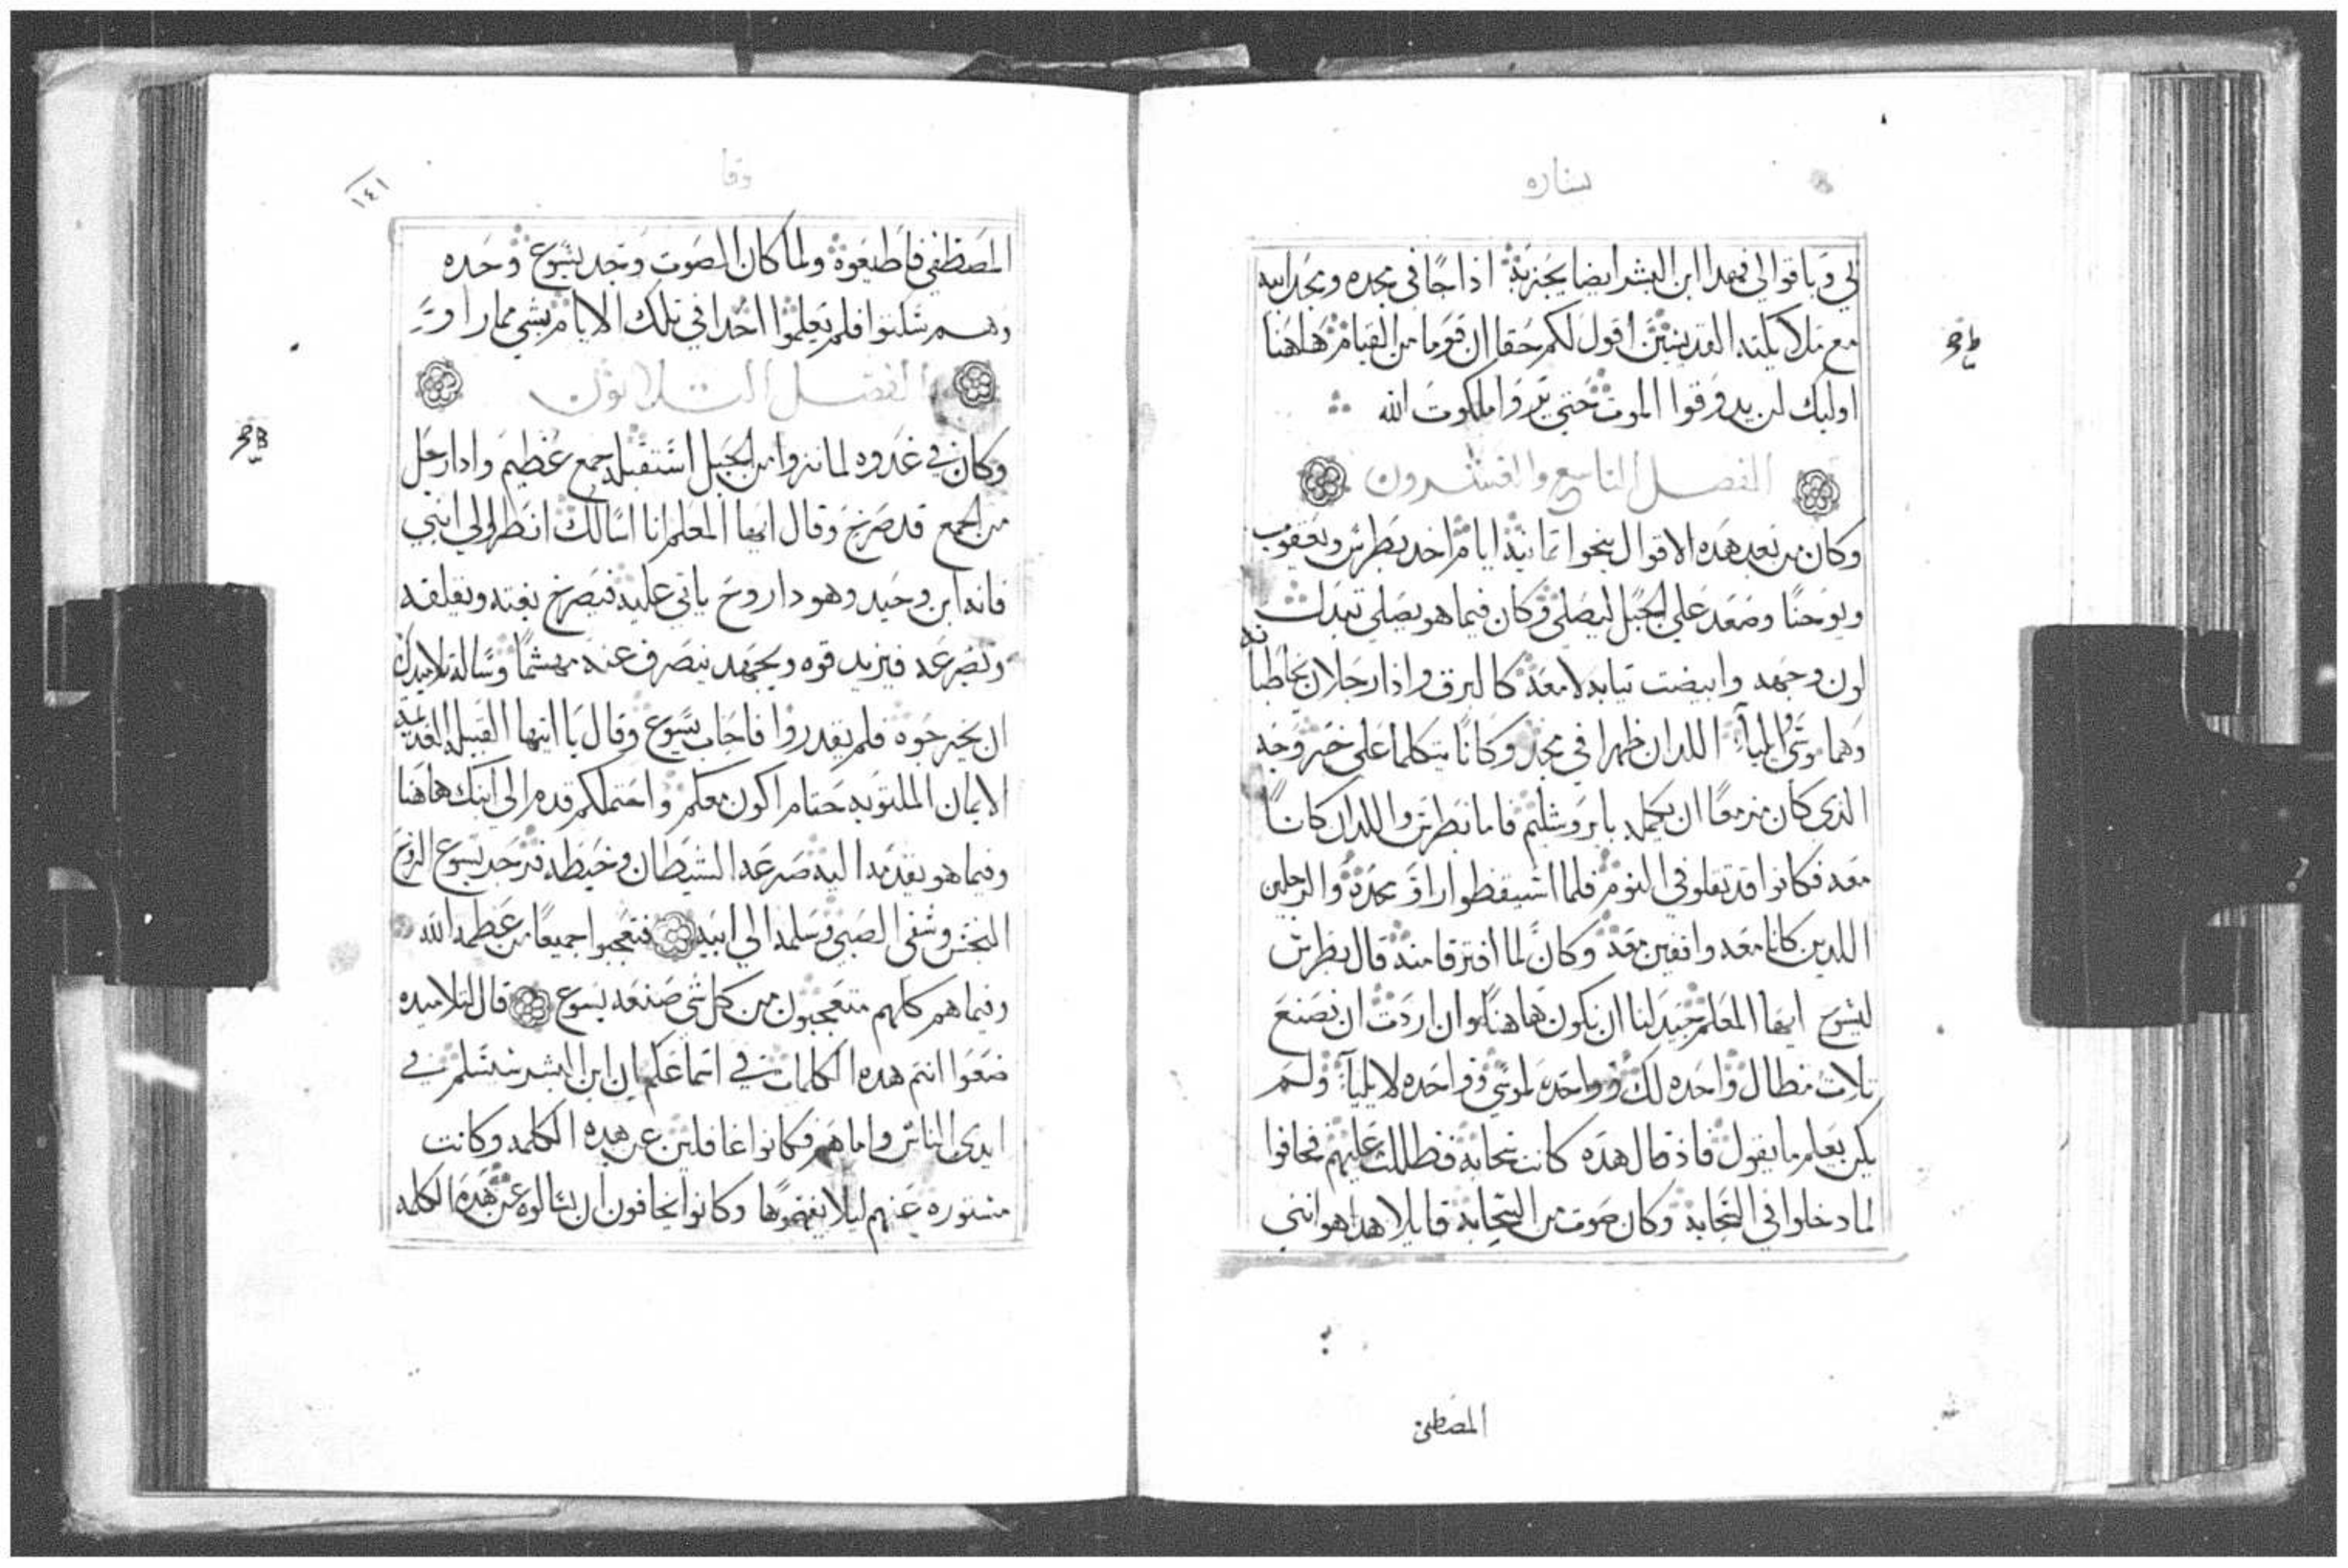 بشاره
لي وباقوالي فهدا ابن البشر ايضا يجزيه اذا جا في مجده ومجد ابيه
مع ملايكته القديسين اقول لكم حقا ان قوما من القيام هاهنا
اوليك لن يدوقوا الموت حتي يروا ملكوت الله
الفصل التاسع والعشرون
وكان من بعد هده الاقوال بنحو تمانية ايام اخد بطرس ويعقوب
ويوحنا وصعد علي الجبل ليصلي وكان فيما هو يصلي تبدل
لون وجهه وابيضت تيابه لامعة كالبرق وادا رجلان يخاطبانه
وهما موسي وايليا اللدان ظهرا في مجد وكانا يتكلما علي خروجه
الذي كان مزمعا ان يكمله بايروشليم فاما بطرس واللدان كانا
معه فكانوا قد تقلوا في النوم فلما استيقظوا راوا مجده والرجلين
اللدين كانا معه واقفين معه وكان لما افترقا منه قال بطرس
ليسوع ايها المعلم جيد لنا ان نكون هاهنا وان اردت ان نصنع
تلات مظال واحده لك وواحدة لموسي وواحده لايليا ولم
يكن يعلم ما يقول فاذ قال هده كانت سحابة فظللت عليهم فخافوا
لما دخلوا في السحابة وكان صوت من السحابة قايلا هدا هو ابني
المصطفي
وقا
١٤١
المصطفي فاطيعوه ولما كان الصوت وجد يسوع وحده
وهم سكتوا فلم يعلموا احدا في تلك الايام بشي مما راوه
الفصل التلاتون
وكان في غدوه لما نزوا من الجبل استقبله جمع عظيم وادا رجل
من الجمع قد صرخ وقال ايها المعلم انا اسالك انظر الي ابني
فانه ابن وحيد وهودا روح ياتي عليه فيصرخ بغته ويقلقه
وتصرعه فيزبد قوه ويجهد ينصرف عنه مهشما وسالة تلاميدك
ان يخرجوه فلم يقدروا فاجاب يسوع وقال يا ايتها القبيله القديمة
الايمان الملتويه حتام اكون معكم واحتملكم قدم الي ابنك هاهنا
وفيما هو يقدمه اليه صرعه الشيطان وخبطه فزجر يسوع الروح
النجس وشفي الصبي وسلمه الي ابيه فتعجبوا جميعا من عظمة الله
وفيما هم كلهم متعجبون من كل شي صنعه يسوع قال لتلاميده
ضعوا انتم هده الكلمات في اسماعكم ان ابن البشر سيسلم في
ايدي الناس واما هم فكانوا غافلين عن هده الكلمه وكانت
مستوره عنهم ليلا يفهموها وكانوا يخافون ان يسالوه عن هده الكلمه